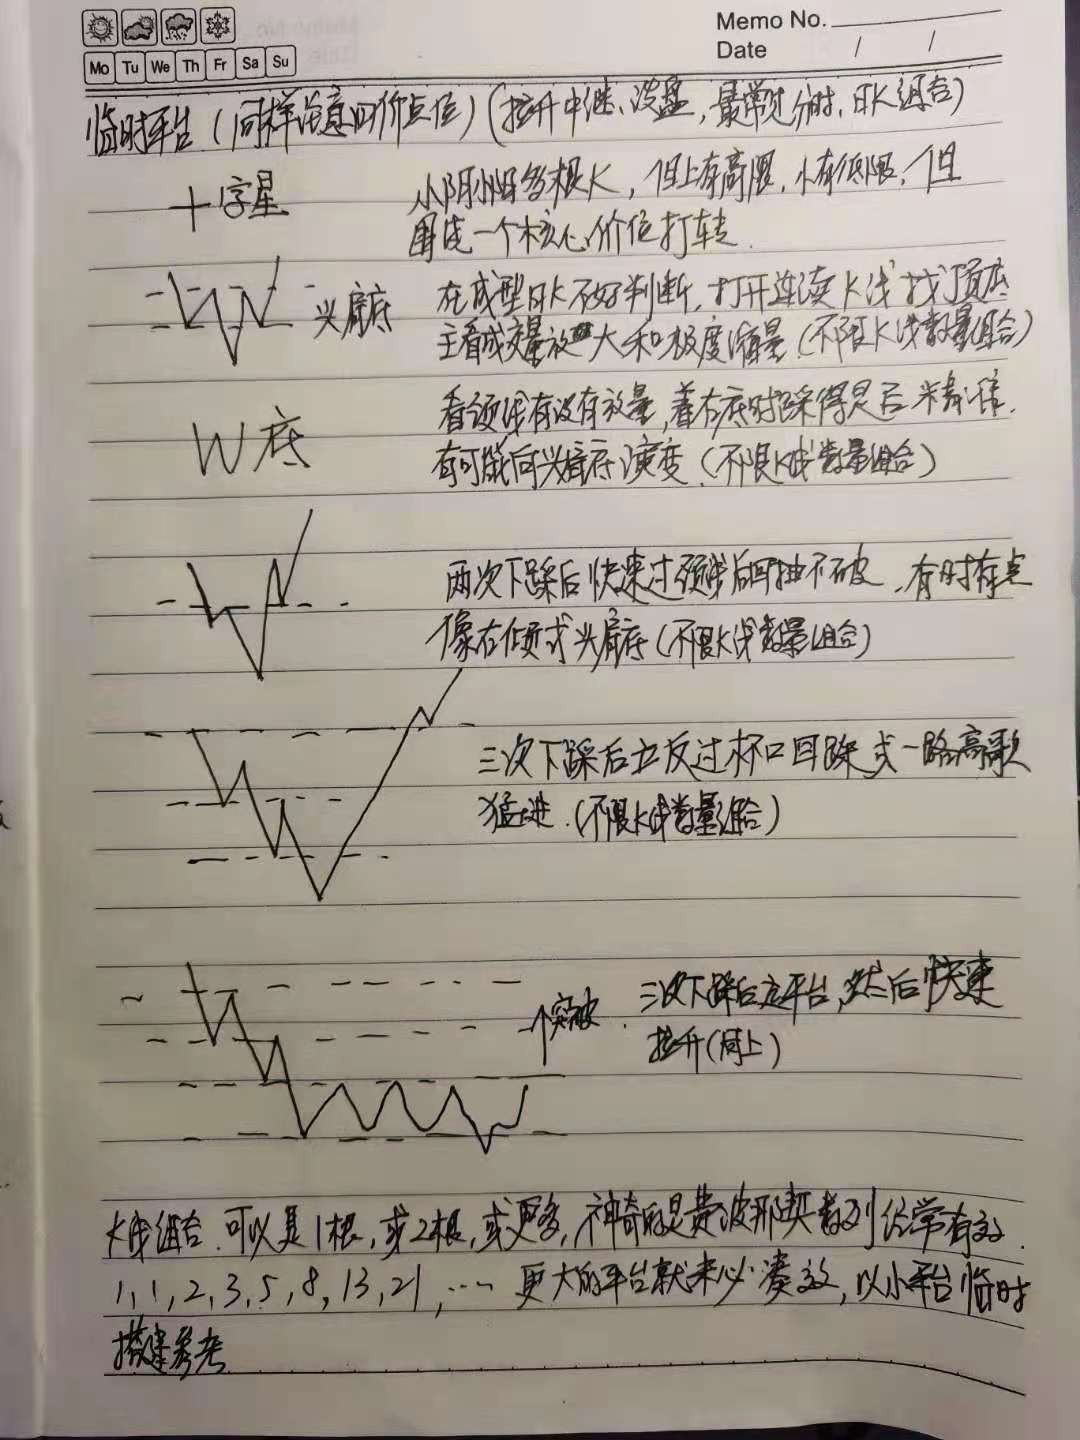 Memo No.
Date / /
Mo Tu We Th Fr Sa Su
临时平台(同样注意四价点位)(拉升中继、洗盘,最常见分时、日K组合)
十字星
小阴小阳多根K,但上有高限,小有低限,但
围绕一个核心价位打转.
头肩底
在成型日K不好判断,打开连续K线找顶底
主看成交量放大和极度缩量(不限K线数量组合)
W底
看颈线有没有放量,看右底时踩得是否
有可能向头肩底演变.(不限K线数量组合)
两次下踩后快速过颈线后回抽不破,有时有点
像右倾式头肩底(不限K线数量组合)
三次下踩后立反过杯口回踩或一路高歌
猛进.(不限K线数量组合)
突破.
三次下踩后走平台,然后快速
拉升(同上)
K线组合.可以是1根,或2根,或更多,神奇的是费波那契数列经常有效.
1,1,2,3,5,8,13,21,… 更大的平台就未必凑效,以小平台临时
搭建参考